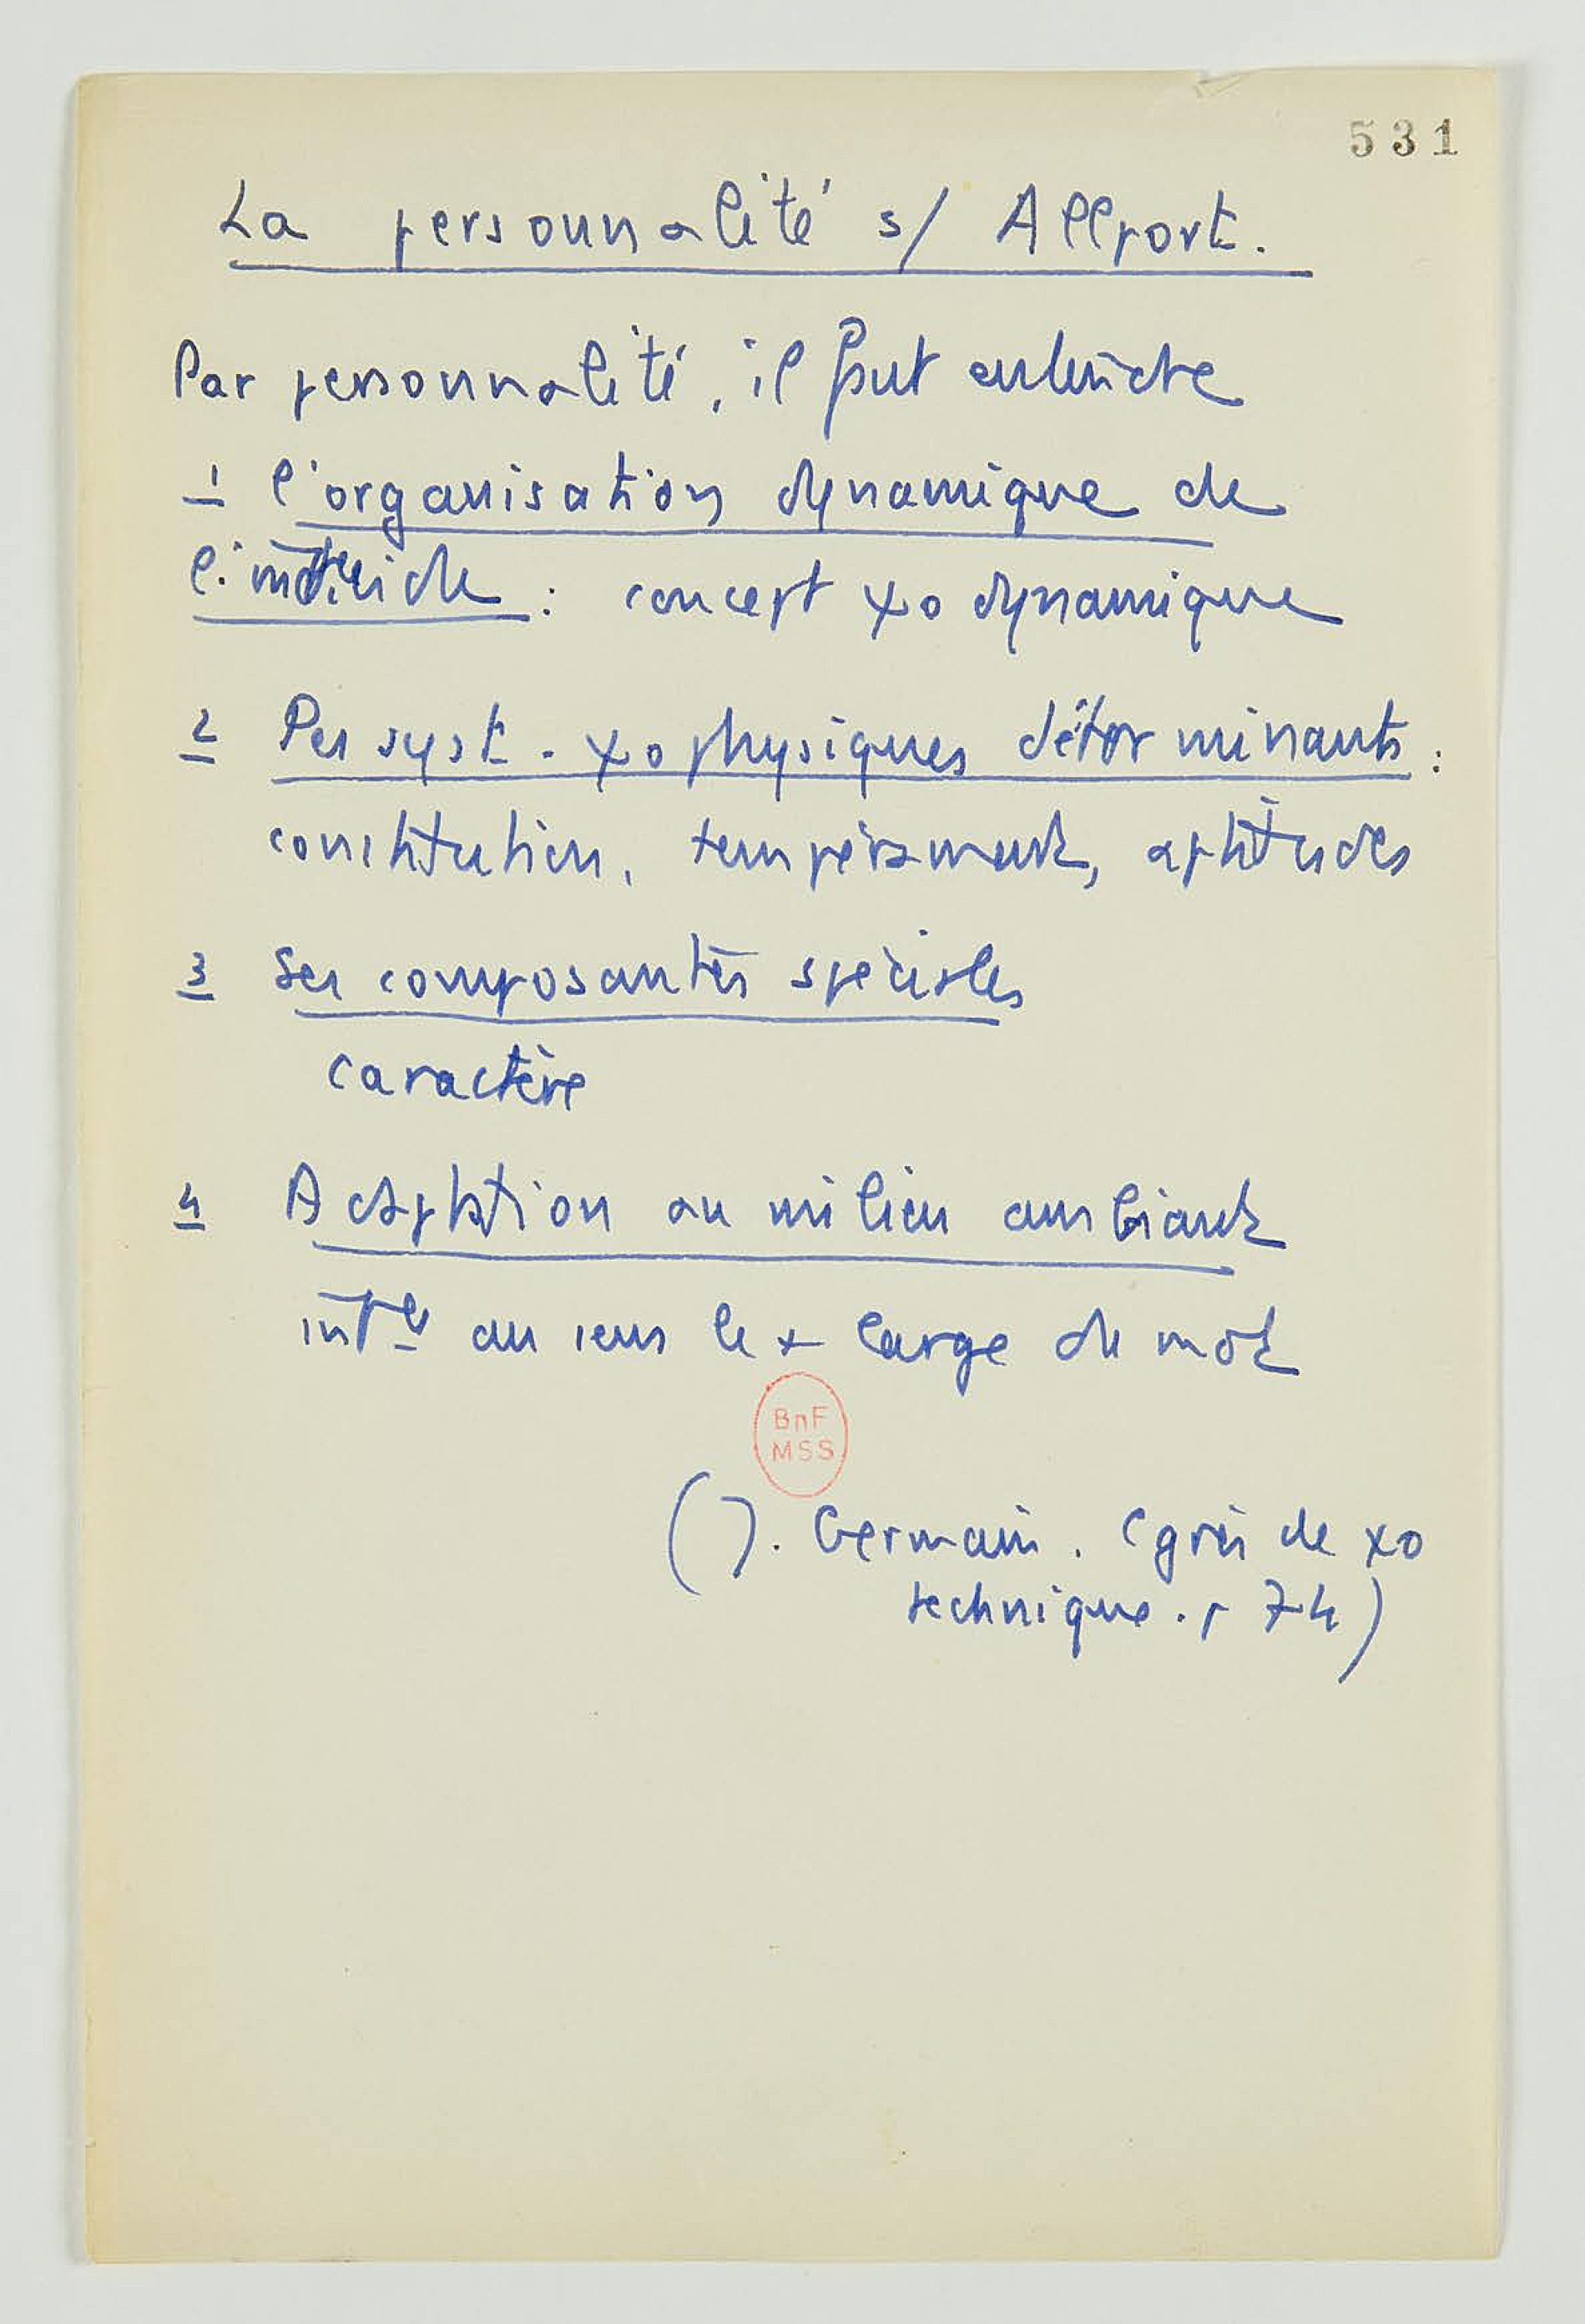 531
La personnalité s/ Allport.
Par personnalité, il faut entendre
1 l'organisation dynamique de
l'individu : concept ψo dynamique
2 Les syst. ψo physiques déterminants :
constitution, tempérament, aptitudes
3 Ses composantes spéciales
caractère
4 Adaptation au milieu ambiant
au sens le + large du mot
BnF
MSS
(J. Germain. Cgrès de ψo
technique. p 74)